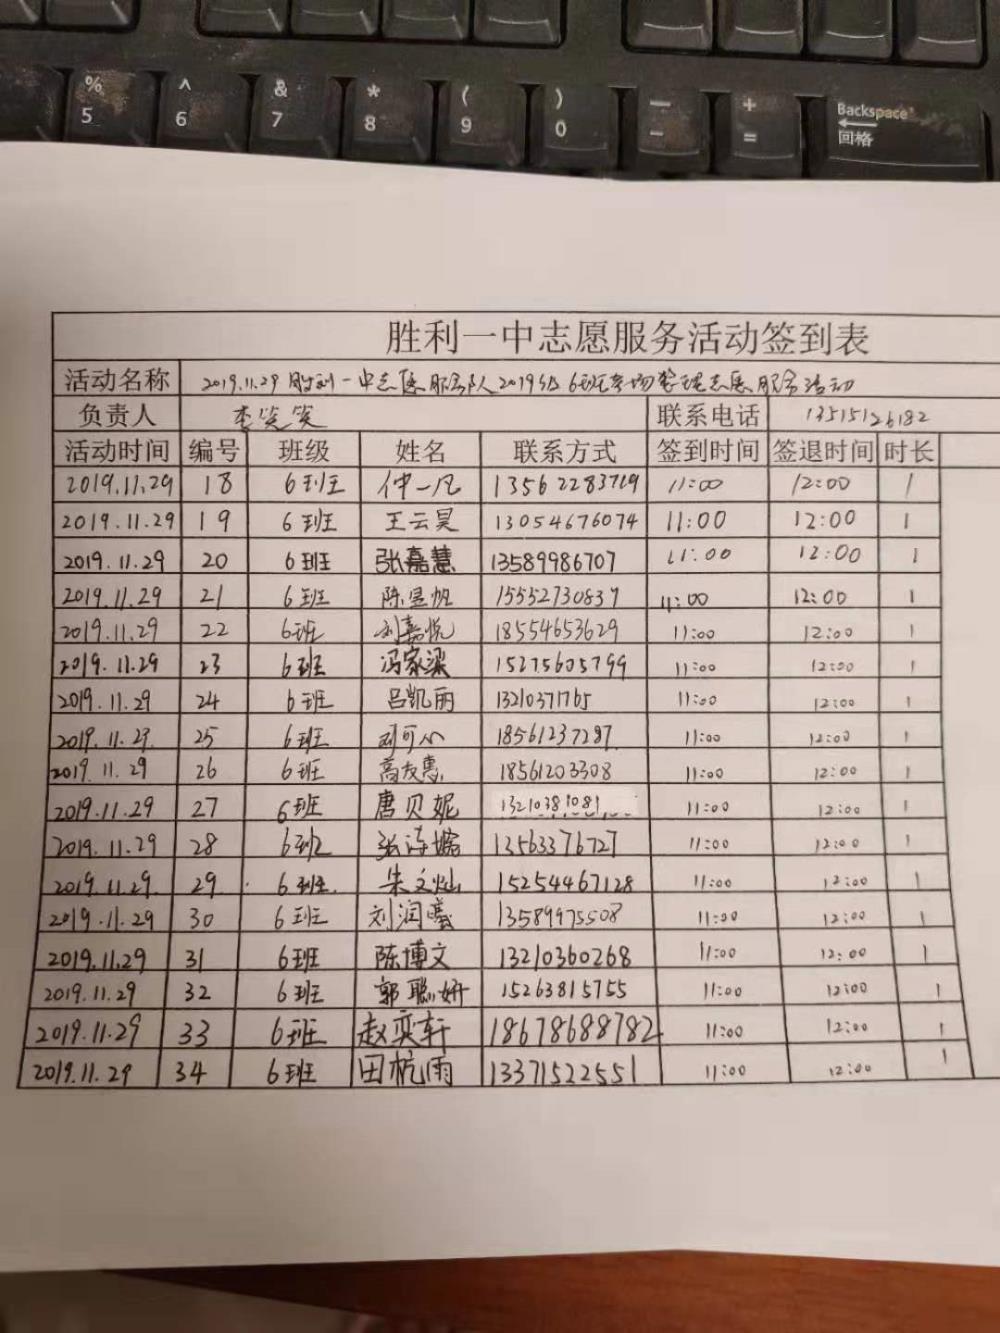 % ^ & * ( ) — + Backspace
5 6 7 8 9 0 - = 回格
胜利一中志愿服务活动签到表
活动名称 2019.11.29胜利一中志愿服务队2019级6班考场整理志愿服务活动
负责人 李笑笑 联系电话 13515126182
活动时间 编号 班级 姓名 联系方式 签到时间 签退时间 时长
2019.11.29 18 6班 仲一凡 13562283719 11:00 12:00 1
2019.11.29 19 6班 王云昊 13054676074 11:00 12:00 1
2019.11.29 20 6班 张嘉慧 13589986707 11:00 12:00 1
2019.11.29 21 6班 陈昱帆 15552730839 11:00 12:00 1
2019.11.29 22 6班 刘嘉悦 18554653629 11:00 12:00 1
2019.11.29 23 6班 冯家梁 15275605799 11:00 12:00 1
2019.11.29 24 6班 吕凯丽 13210371765 11:00 12:00 1
2019.11.29 25 6班 刘可心 18561237287 11:00 12:00 1
2019.11.29 26 6班 高友惠 18561203308 11:00 12:00 1
2019.11.29 27 6班 唐贝妮 13210381081 11:00 12:00 1
2019.11.29 28 6班 13563376727 11:00 12:00 1
2019.11.29 29 6班 朱文灿 15254467128 11:00 12:00 1
2019.11.29 30 6班 刘润曦 13589975508 11:00 12:00 1
2019.11.29 31 6班 陈博文 13210360268 11:00 12:00 1
2019.11.29 32 6班 郭聪妍 15263815755 11:00 12:00 1
2019.11.29 33 6班 赵奕轩 18678688782 11:00 12:00 1
2019.11.29 34 6班 田杭雨 13371522551 11:00 12:00 1